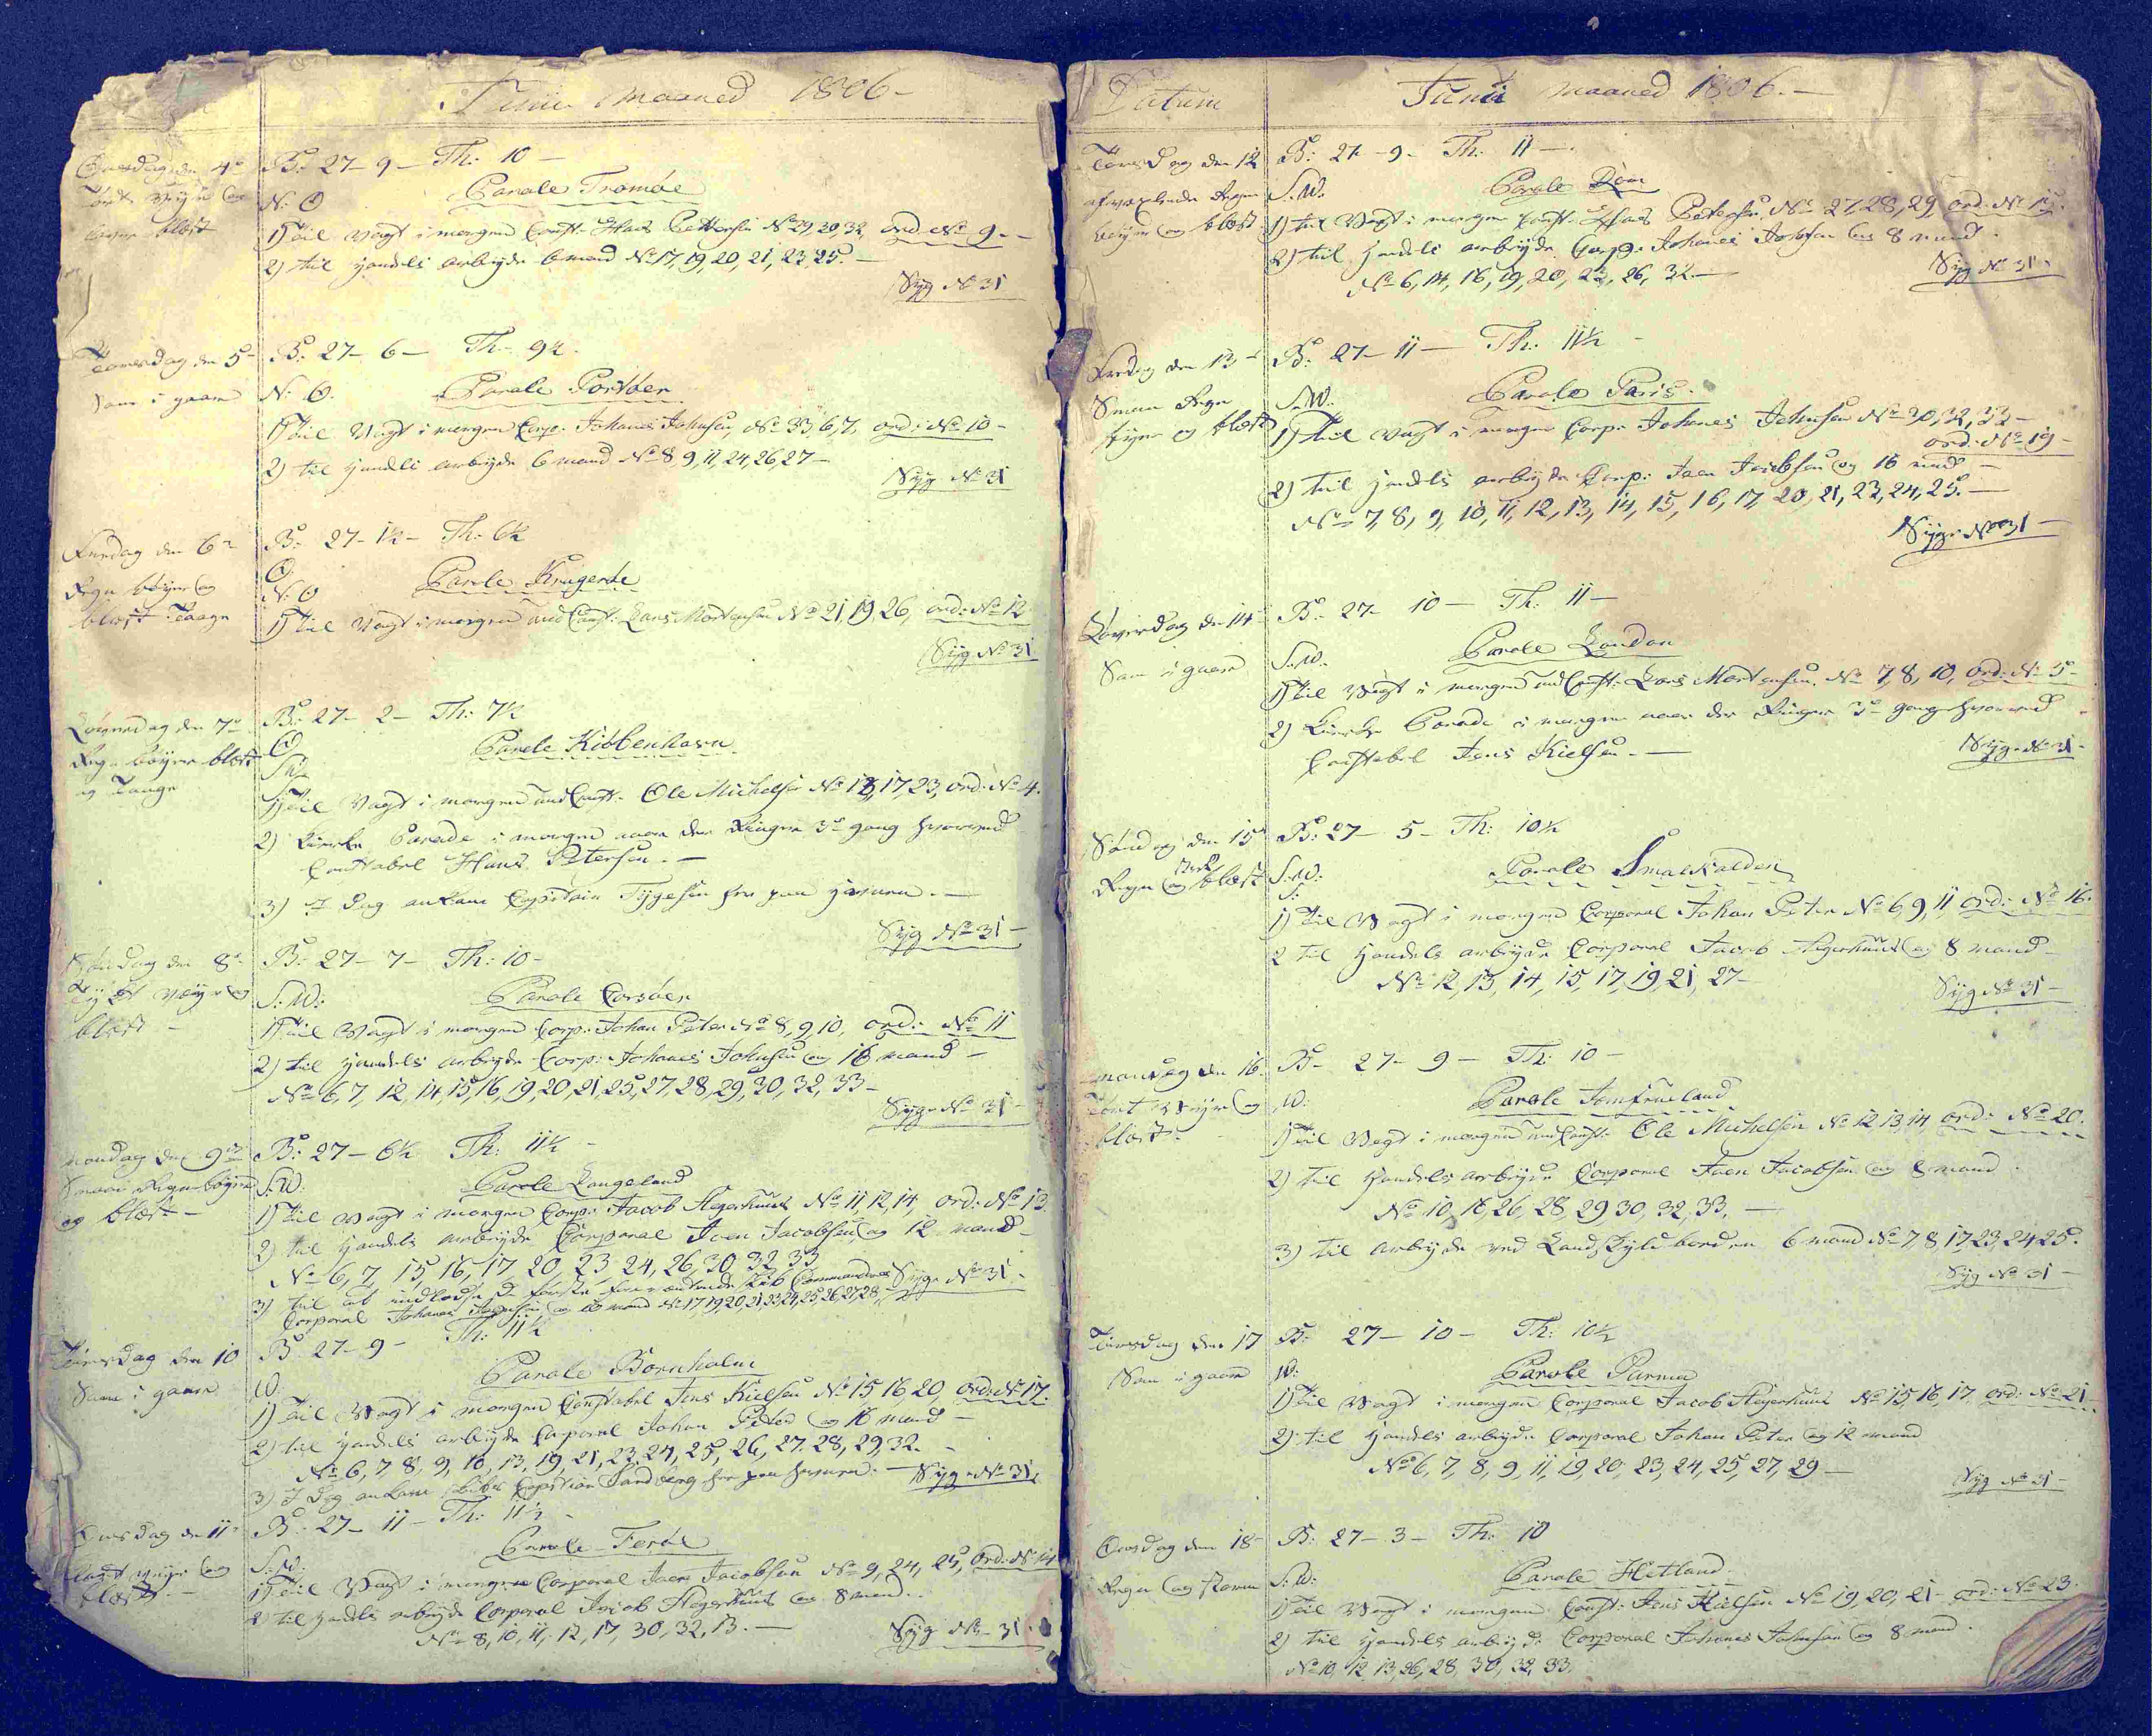 Junii Maaned 1806-
Onsdag den 4de B: 27-9- Th: 10-
Tørt Veyr og N: O Parole Tromøe
blæst 1) Til Vagt i morgen Const: Hans Pettersen No 29, 30, 32, ord No 9.-
2) til Handels arbeyde 6 mand No 17, 19, 20, 21, 23, 25.-
Syg No 31
Torsdag den 5te B: 27-6- Th:- 9½-
Som i gaar N: O. Parole Corsøer
1) Til Vagt i morgen Corp: Johanes Johnsen, No 33, 6, 7, ord: No 10-
2) til Handels arbeyde 6 mand No 8, 9, 11, 24, 26, 27-
Syg No 31
Fredag den 6te B: 27-1½- Th: 6½
Regn bøyer og O
blæst Taage N: O Parole Kragerøe
1) Til Vagt i morgen und Const: Lars Mortensen No 21, 19, 26, ord: No 12
Syg No 31
Løverdag den 7de B: 27-2- Th: 7½
Regn bøyer blæst O Parole Kiøbenhavn
og Taage
1) Til Vagt i morgen und Const: Ole Michelsen No 13, 17, 23, ord: No 4.
2) Kierke Parade i morgen naar der Ringer 3de gang hvorved
Constabel Hans Petersen.-
3) I dag ankom Capitain Tygesen her paa Havnen.-
Syg No 31-
Søndag den 8de B: 27-7- Th: 10-
Veyr og S: W: Parole Corsøer
blæst - 1) Til Vagt i morgen Corp: Johan Peter No 8, 9, 10, ord: No 11
2) til Handels arbeyde Corp: Johanes Johnsen og 16 mand-
No 6, 7, 12, 14, 15, 16, 19, 20, 21, 25, 27, 28, 29, 30, 32, 33-
Syg No 31-
Mandag den 9de B: 27-6½ Th: 11½-
Smaae Regn bøyer S: W: Parole Langeland
og blæst - 1) Til Vagt i morgen Corp: Jacob Hegerhuus No 11, 12, 14, ord: No 13
2) til Handels arbeyde Corporal Joen Jacobsen og 12 mand-
No 6, 7, 15, 16, 17, 20, 23, 24, 26, 30, 32, 33
3) til at indlodse det første forventende Skib Commanderes Syg No 31-
Corporal Johanes Johnsen og 10 mand No 17, 19, 20, 21, 23, 24, 25, 26, 27, 28
Tirsdag den 10 B 27-9- Th: 11½
Som i gaar W. Parole Bornholm
1) Til Vagt i morgen Constabel Jens Kielsen No 15, 16, 20, ord: No 17.
2) til Handels arbeyde Corporal Johan Peter og 16 mand-
No 6, 7, 8, 9, 10, 13, 19, 21, 23, 24, 25, 26, 27, 28, 29, 32.-
3) I dag ankom Skibs Capitain Sandberg her paa Havnen.- Syg No 31
Onsdag den 11te B: 27-11- Th: 11½-
Veyr og S: W: Parole Ferøe
blæst.- 1) Til Vagt i morgen Corporal Joen Jacobsen No 9, 24, 25, Ord: No 14
2) til Handels arbeyde Corporal Jacob Hegerhuus og 8 mand.
No 8, 10, 11, 12, 17, 30, 32, 13.-
Syg No 31.
Datum Junii Maaned 1806.-
Torsdag den 12 B: 27-9- Th: 11-
afvexlende Regn S: W: Parole Rom
bøyer og blæst 1) til Vagt i morgen Const: Hans Petersen No 27, 28, 29, ord: No 15.
2) til Handels arbeyde Corp: Johanes Johnsen og 8 mand.
No 6, 14, 16, 19, 20, 23, 26, 32.-
Syg No 31-
Fredag den 13de B: 27-11- Th: 11½-
Smaae Regn S: W: Parole Paris.
byer og blæst 1) til Vagt i morgen Corp: Johanes Johnsen No 30, 32, 33-
ord: No 19-
2) til Handels arbeyde Corp: Joen Jacobsen og 16 mand-
No 7, 8, 9, 10, 11, 12, 13, 14, 15, 16, 17, 20, 21, 23, 24, 25.-
Syg: No 31-
Løverdag den 14de B: 27-10- Th: 11-
Som i gaar S: W. Parole London
1) Til Vagt i morgen und Const: Lars Mortensen, No 7, 8, 10, ord: No 5-
2) Kierke Parade i morgen naar der Ringer 3de gang hvorved
Constabel Jens Kielsen.-
Syg No 31-
Søndag den 15de B: 27-5- Th: 10½
Regn og stærk blæst S: W: Parole Smalkalden
S:
1) Til Vagt i morgen Corporal Johan Peter No 6, 9, 11, ord: No 16.
2 til Handels arbeyde Corporal Jacob Hegerhuus og 8 mand-
No 12, 13, 14, 15, 17, 19, 21, 27-
Syg No 31-
Mandag den 16. B- 27-9- Th: 10-
Tørt Veyr og W: Parole Jomfrueland
blæst.- 1) Til Vagt i morgen und Const: Ole Michelsen No 12, 13, 14, ord: No 20.
2) til Handels arbeyde Corporal Joen Jacobsen og 8 mand.
No 10, 16, 26, 28, 29, 30, 32, 33.-
3) til arbeyde ved Landskyld borden 6 mand No 7, 8, 17, 23, 24, 25.
Syg No 31-
Tirsdag den 17 B: 27-10- Th: 10½
Som i gaar W: Parole Parma
1) Til Vagt i morgen Corporal Jacob Hegerhuus No 15, 16, 17, ord: No 21-
2) til Handels arbeyde Corporal Johan Peter og 12 mand
No 6, 7, 8, 9, 11, 19, 20, 23, 24, 25, 27, 29-
Syg No 31-
Onsdag den 18de B: 27-3- Th: 10
Regn og storm S: W: Parole Hitland-
1) Til Vagt i morgen Const: Jens Kielsen No 19, 20, 21- ord: No 23.
2) til Handels arbeyde Corporal Johanes Johnsen og 8 mand.
No 10, 12, 13, 26, 28, 30, 32, 33.